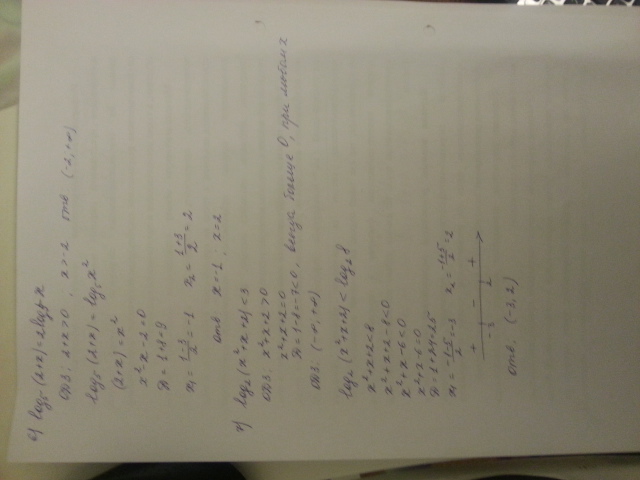 е) log₅ (2+x) = 2log₅ x
ОДЗ. 2+x>0, x>-2 отв (-2,+∞)
log₅ (2+x) = log₅ x²
(2+x) = x²
x²-x-2=0
D=1+8=9
x₁ = (1-3)/2 = -1 x₂ = (1+3)/2 = 2
отв x=-1; x=2
log₂ (x²+x+2) < 3
ОДЗ. x²+x+2>0
x²+x+2=0
D=1-8=-7<0, больше 0, при любом x
ОДЗ. (-∞,+∞)
log₂ (x²+x+2) < log₂ 8
x²+x+2<8
x²+x+2-8<0
x²+x-6<0
x²+x-6=0
D=1+24=25
x₁ = (-1-5)/2 = -3 x₂ = (-1+5)/2 = 2
+ - +
-3 2
отв. (-3,2)